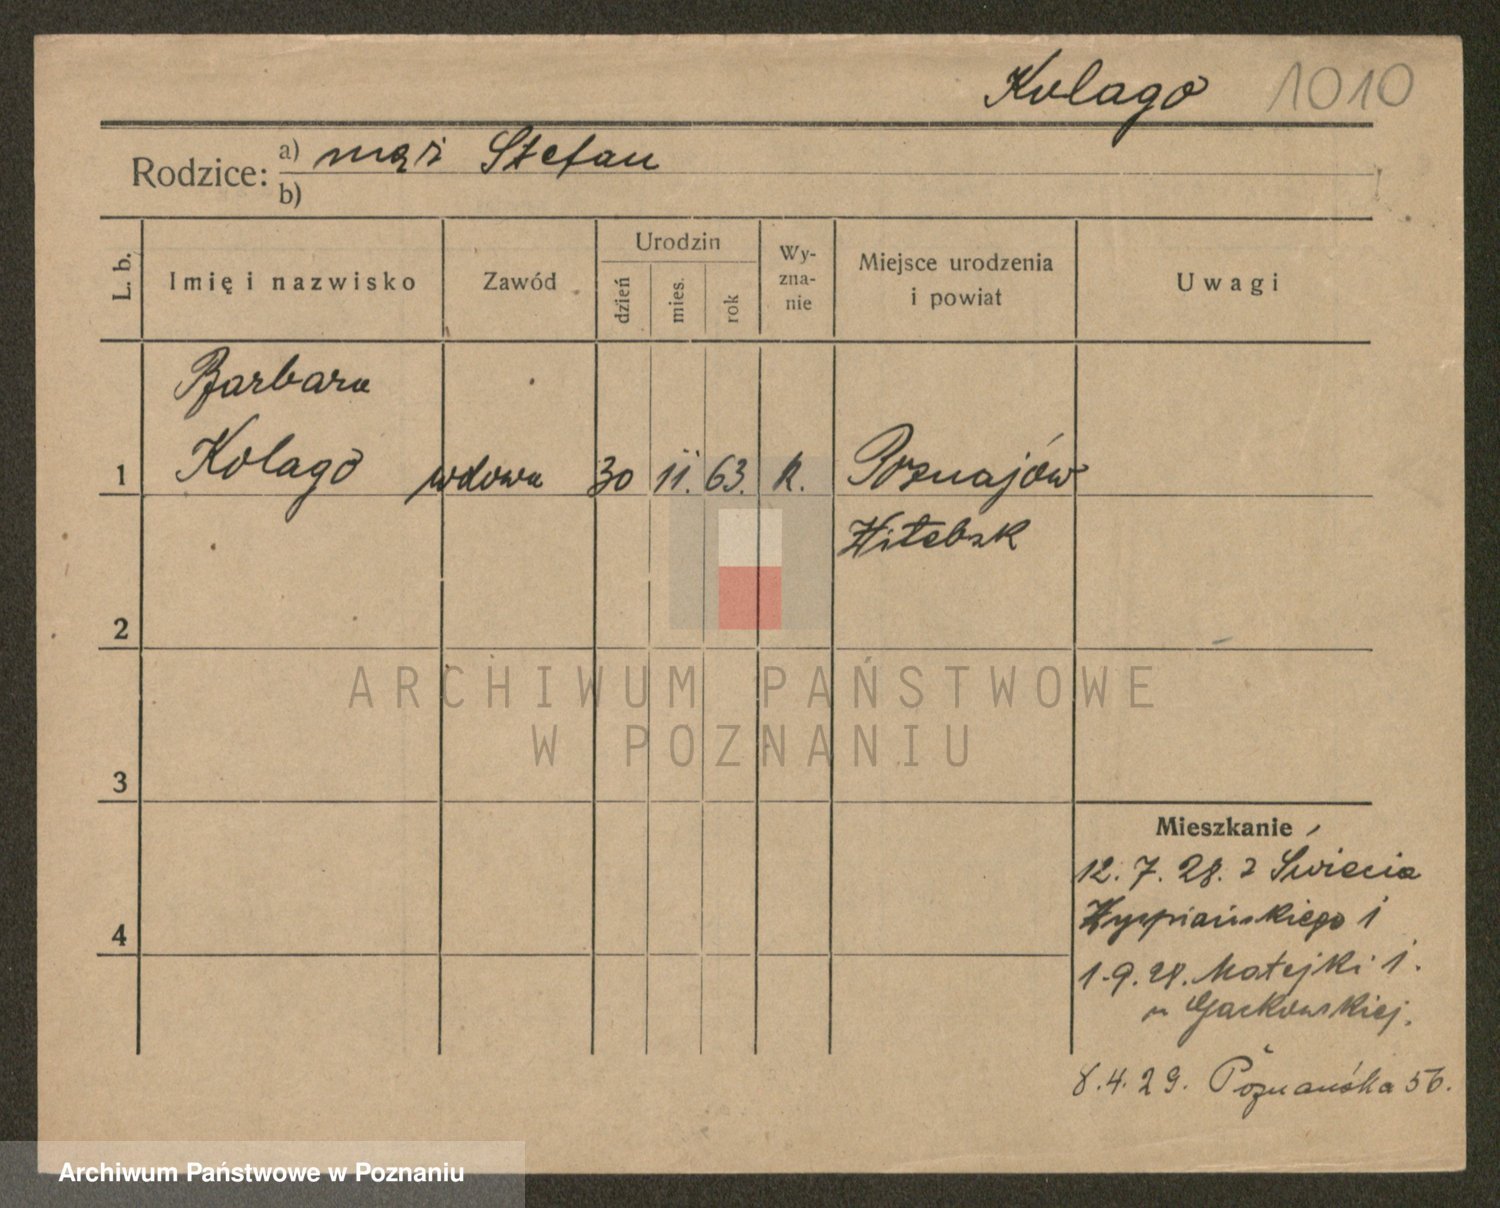 Kolago 1010
Rodzice: a) mąż Stefan
b)
L. b.
Imię i nazwisko
Zawód
Urodzin
dzień
mies.
rok
Wy-
zna-
nie
Miejsce urodzenia
i powiat
Uwagi
Barbara
1 Kolago wdowa 30 11. 63. k. Poznajów
Witebsk
2
3
4
ARCHIWUM PAŃSTWOWE
W POZNANIU
Mieszkanie
12. 7. 28. z Świecia
Wyspiańskiego 1
1.9.28. Matejki 1.
u Gackowskiej.
8.4.29. Poznańska 56.
Archiwum Państwowe w Poznaniu